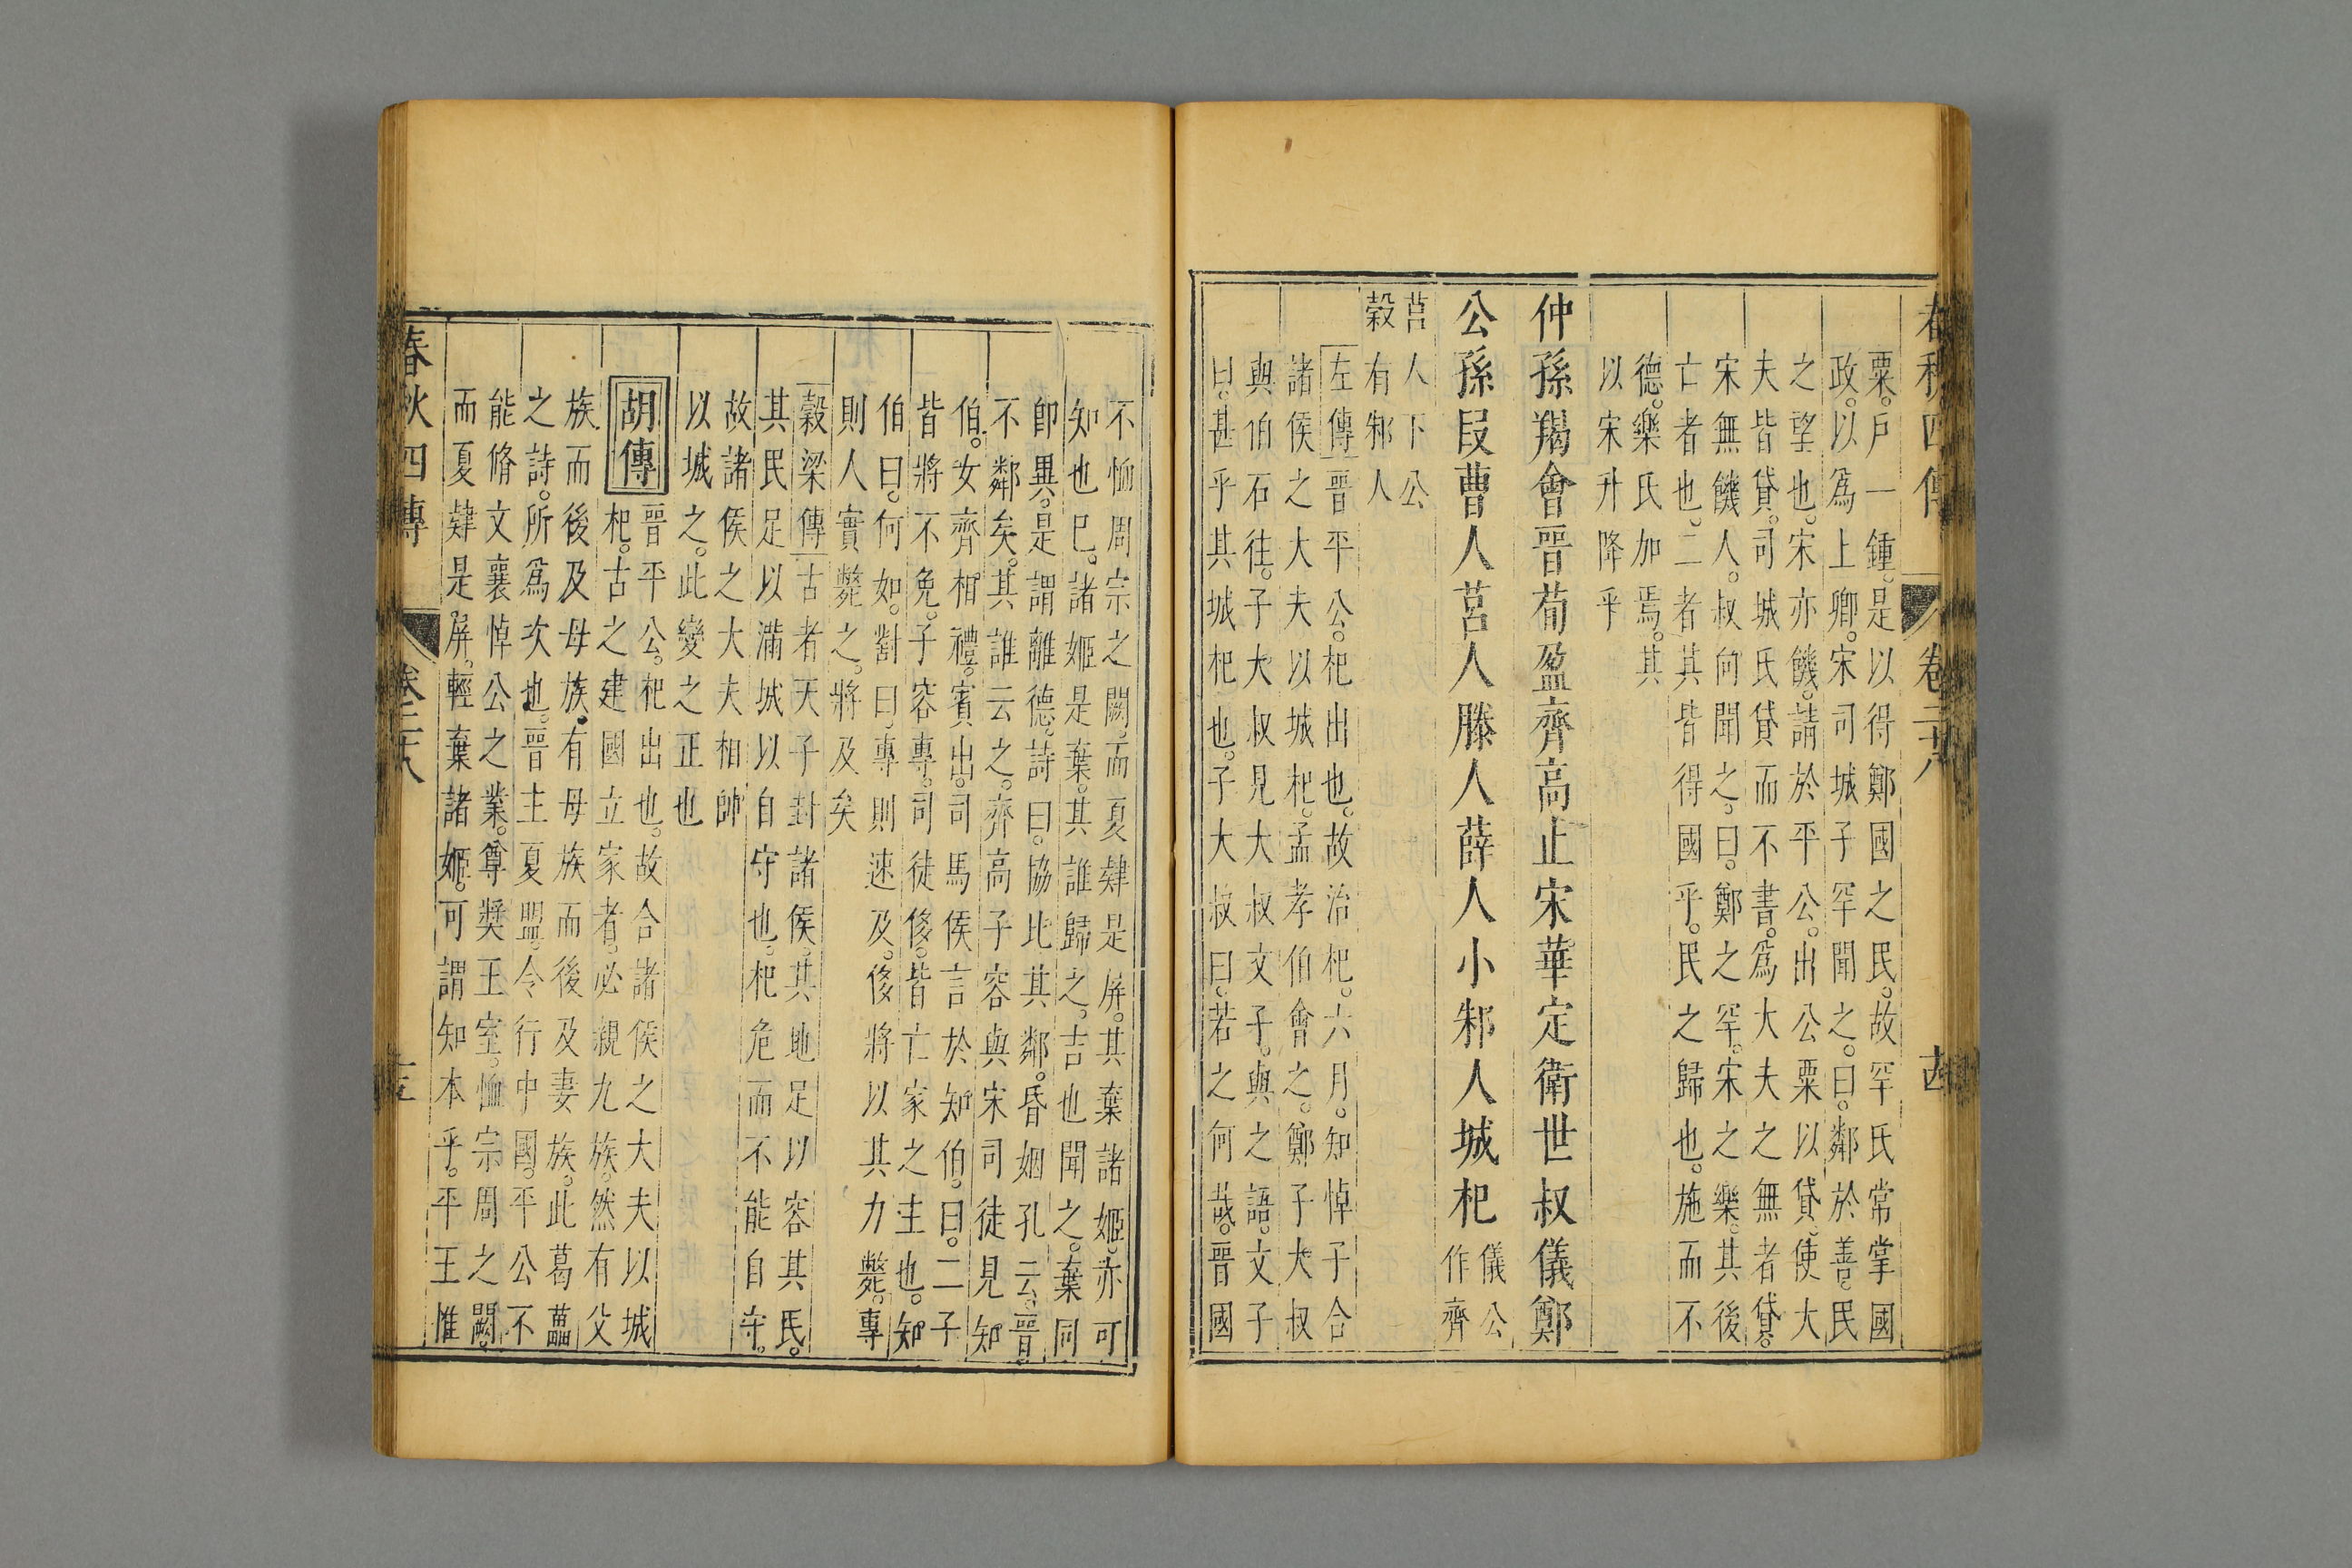 春秋四傳 卷二十八 十四
粟。戶一鍾。是以得鄭國之民。故罕氏常掌國
政。以爲上卿。宋司城子罕聞之。曰。鄰於善。民
之望也。宋亦饑。請於平公。出公粟以貸。使大
夫皆貸。司城氏貸而不書。爲大夫之無者貸。
宋無饑人。叔向聞之。曰。鄭之罕。宋之樂。其後
亡者也。二者其皆得國乎。民之歸也。施而不
德。樂氏加焉。其
以宋升降乎
仲孫羯會晉荀盈齊高止宋華定衛世叔儀鄭
公孫段曹人莒人滕人薛人小邾人城杞
儀公
作齊
莒人下公
穀有邾人
左傳晉平公。杞出也。故治杞。六月。知悼子合
諸侯之大夫以城杞。孟孝伯會之。鄭子大叔
與伯石往。子大叔見大叔文子。與之語。文子
曰。甚乎其城杞也。子大叔曰。若之何哉。晉國
不恤周宗之闕。而夏肄是屏。其棄諸姬。亦可
知也巳。諸姬是棄。其誰歸之。吉也聞之。棄同
卽異。是謂離德。詩曰。協比其鄰。昏姻孔云。晉
不鄰矣。其誰云之。齊高子容與宋司徒見知
伯。女齊相禮。賓出。司馬侯言於知伯。曰。二子
皆將不免。子容專。司徒侈。皆亡家之主也。知
伯曰。何如。對曰。專則速及。侈將以其力斃。專
則人實斃之。將及矣
穀梁傳古者天子封諸侯。其地足以容其民。
其民足以滿城以自守也。杞危而不能自守。
故諸侯之大夫相帥
以城之。此變之正也
胡傳晉平公。杞出也。故合諸侯之大夫以城
杞。古之建國立家者。必親九族。然有父
族而後及母族。有母族而後及妻族。此葛藟
之詩。所爲次也。晉主夏盟。令行中國。平公不
能脩文襄悼公之業。尊奬王室。恤宗周之闕。
而夏肄是屏。輕棄諸姬。可謂知本乎。平王惟
春秋四傳 卷二十八 十五